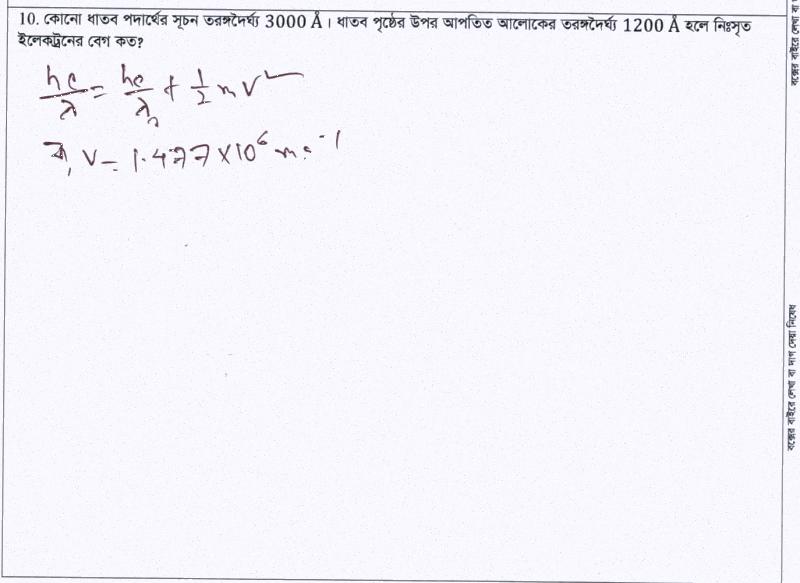 10. কোনো ধাতব পদার্থের সূচন তরঙ্গদৈর্ঘ্য 3000 Å। ধাতব পৃষ্ঠের উপর আপতিত আলোকের তরঙ্গদৈর্ঘ্য 1200 Å হলে নিঃসৃত
ইলেকট্রনের বেগ কত?
hc/λ = hc/λ₀ + 1/2 mv²
বা, v = 1.477×10⁶ ms⁻¹
বক্সের বাইরে লেখা বা দাগ দেয়া নিষেধ
বক্সের বাইরে লেখা বা